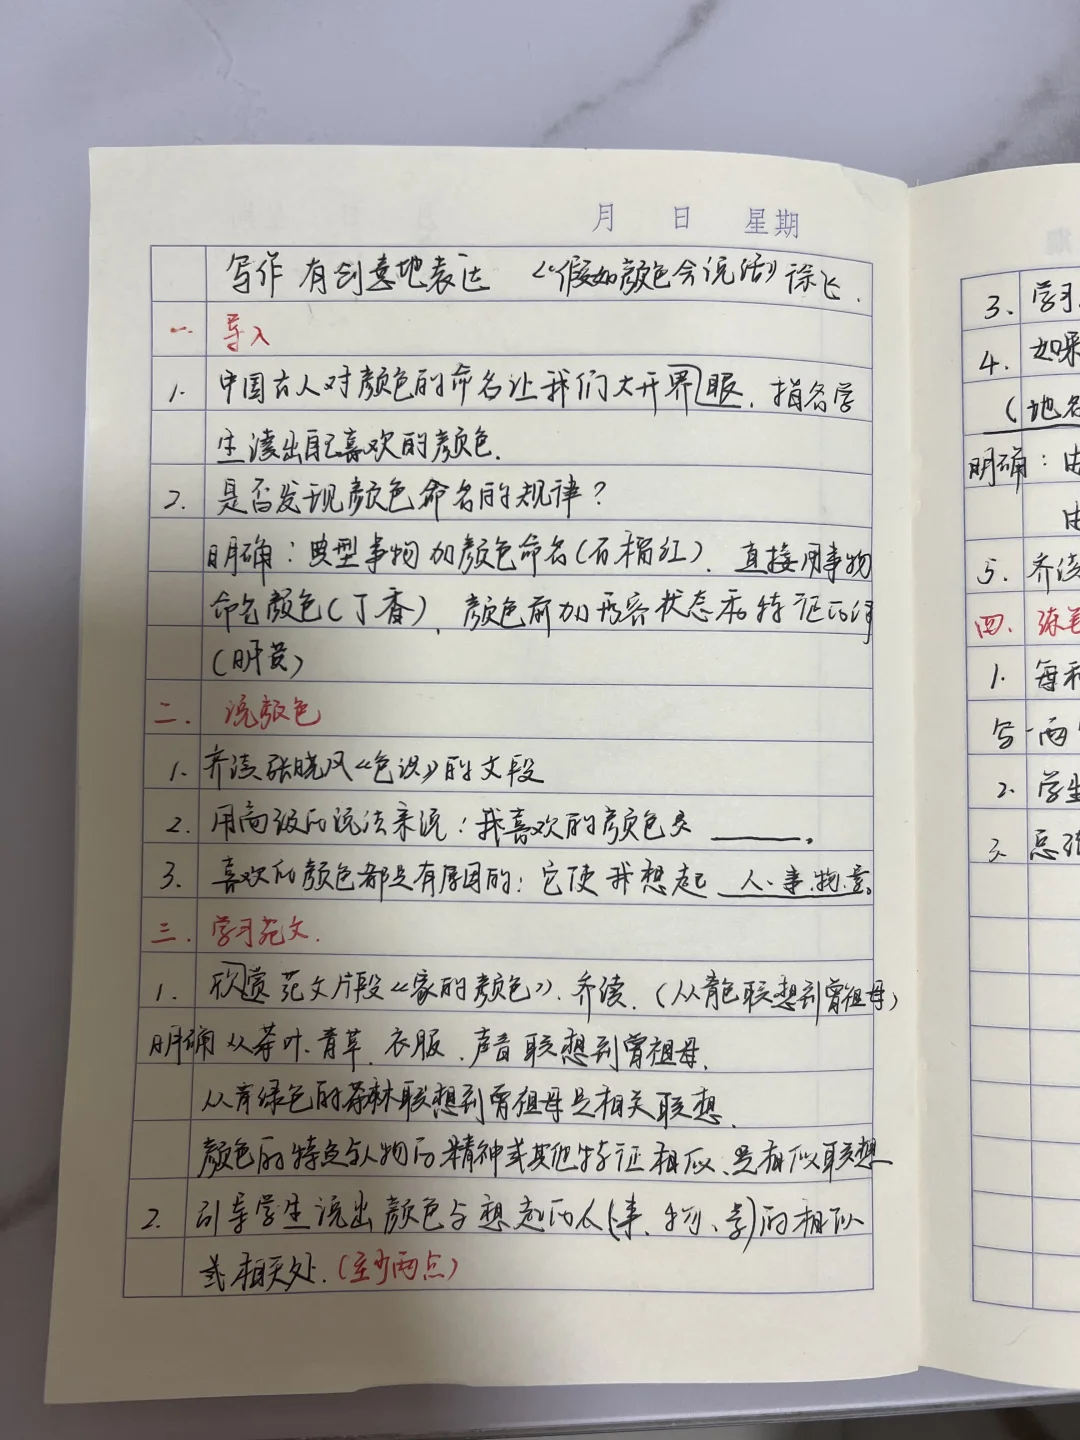 月 日 星期
写作 有创意地表达 《“假如颜色会说话》徐飞.
一. 导入
1. 中国古人对颜色的命名让我们大开界眼. 指名学
生读出自己喜欢的颜色.
2. 是否发现颜色命名的规律?
明确: 典型事物加颜色命名(石榴红). 直接用事物
命名颜色(丁香). 颜色前加形容状态和特征的词
(明黄)
二. 说颜色
1. 齐读张晓风《色识》的文段
2. 用高级的说法来说: 我喜欢的颜色是 ______.
3. 喜欢的颜色都是有原因的: 它使我想起 人.事.物.景.
三. 学习范文.
1. 欣赏范文片段《家的颜色》. 齐读. (从青色联想到曾祖母)
明确 从茶叶、青草、衣服、声音联想到曾祖母.
从青绿色的茶林联想到曾祖母是相关联想.
颜色的特点与人物的精神或其他特征相似、是相似联想
2. 引导学生说出颜色与想起的人(事、物、景)的相似
或相关处. (至少两点)
3. 学习
4. 如果
(地名
明确: 由
由
5. 齐读
四. 练笔
1. 每
写一两个
2. 学生
3.